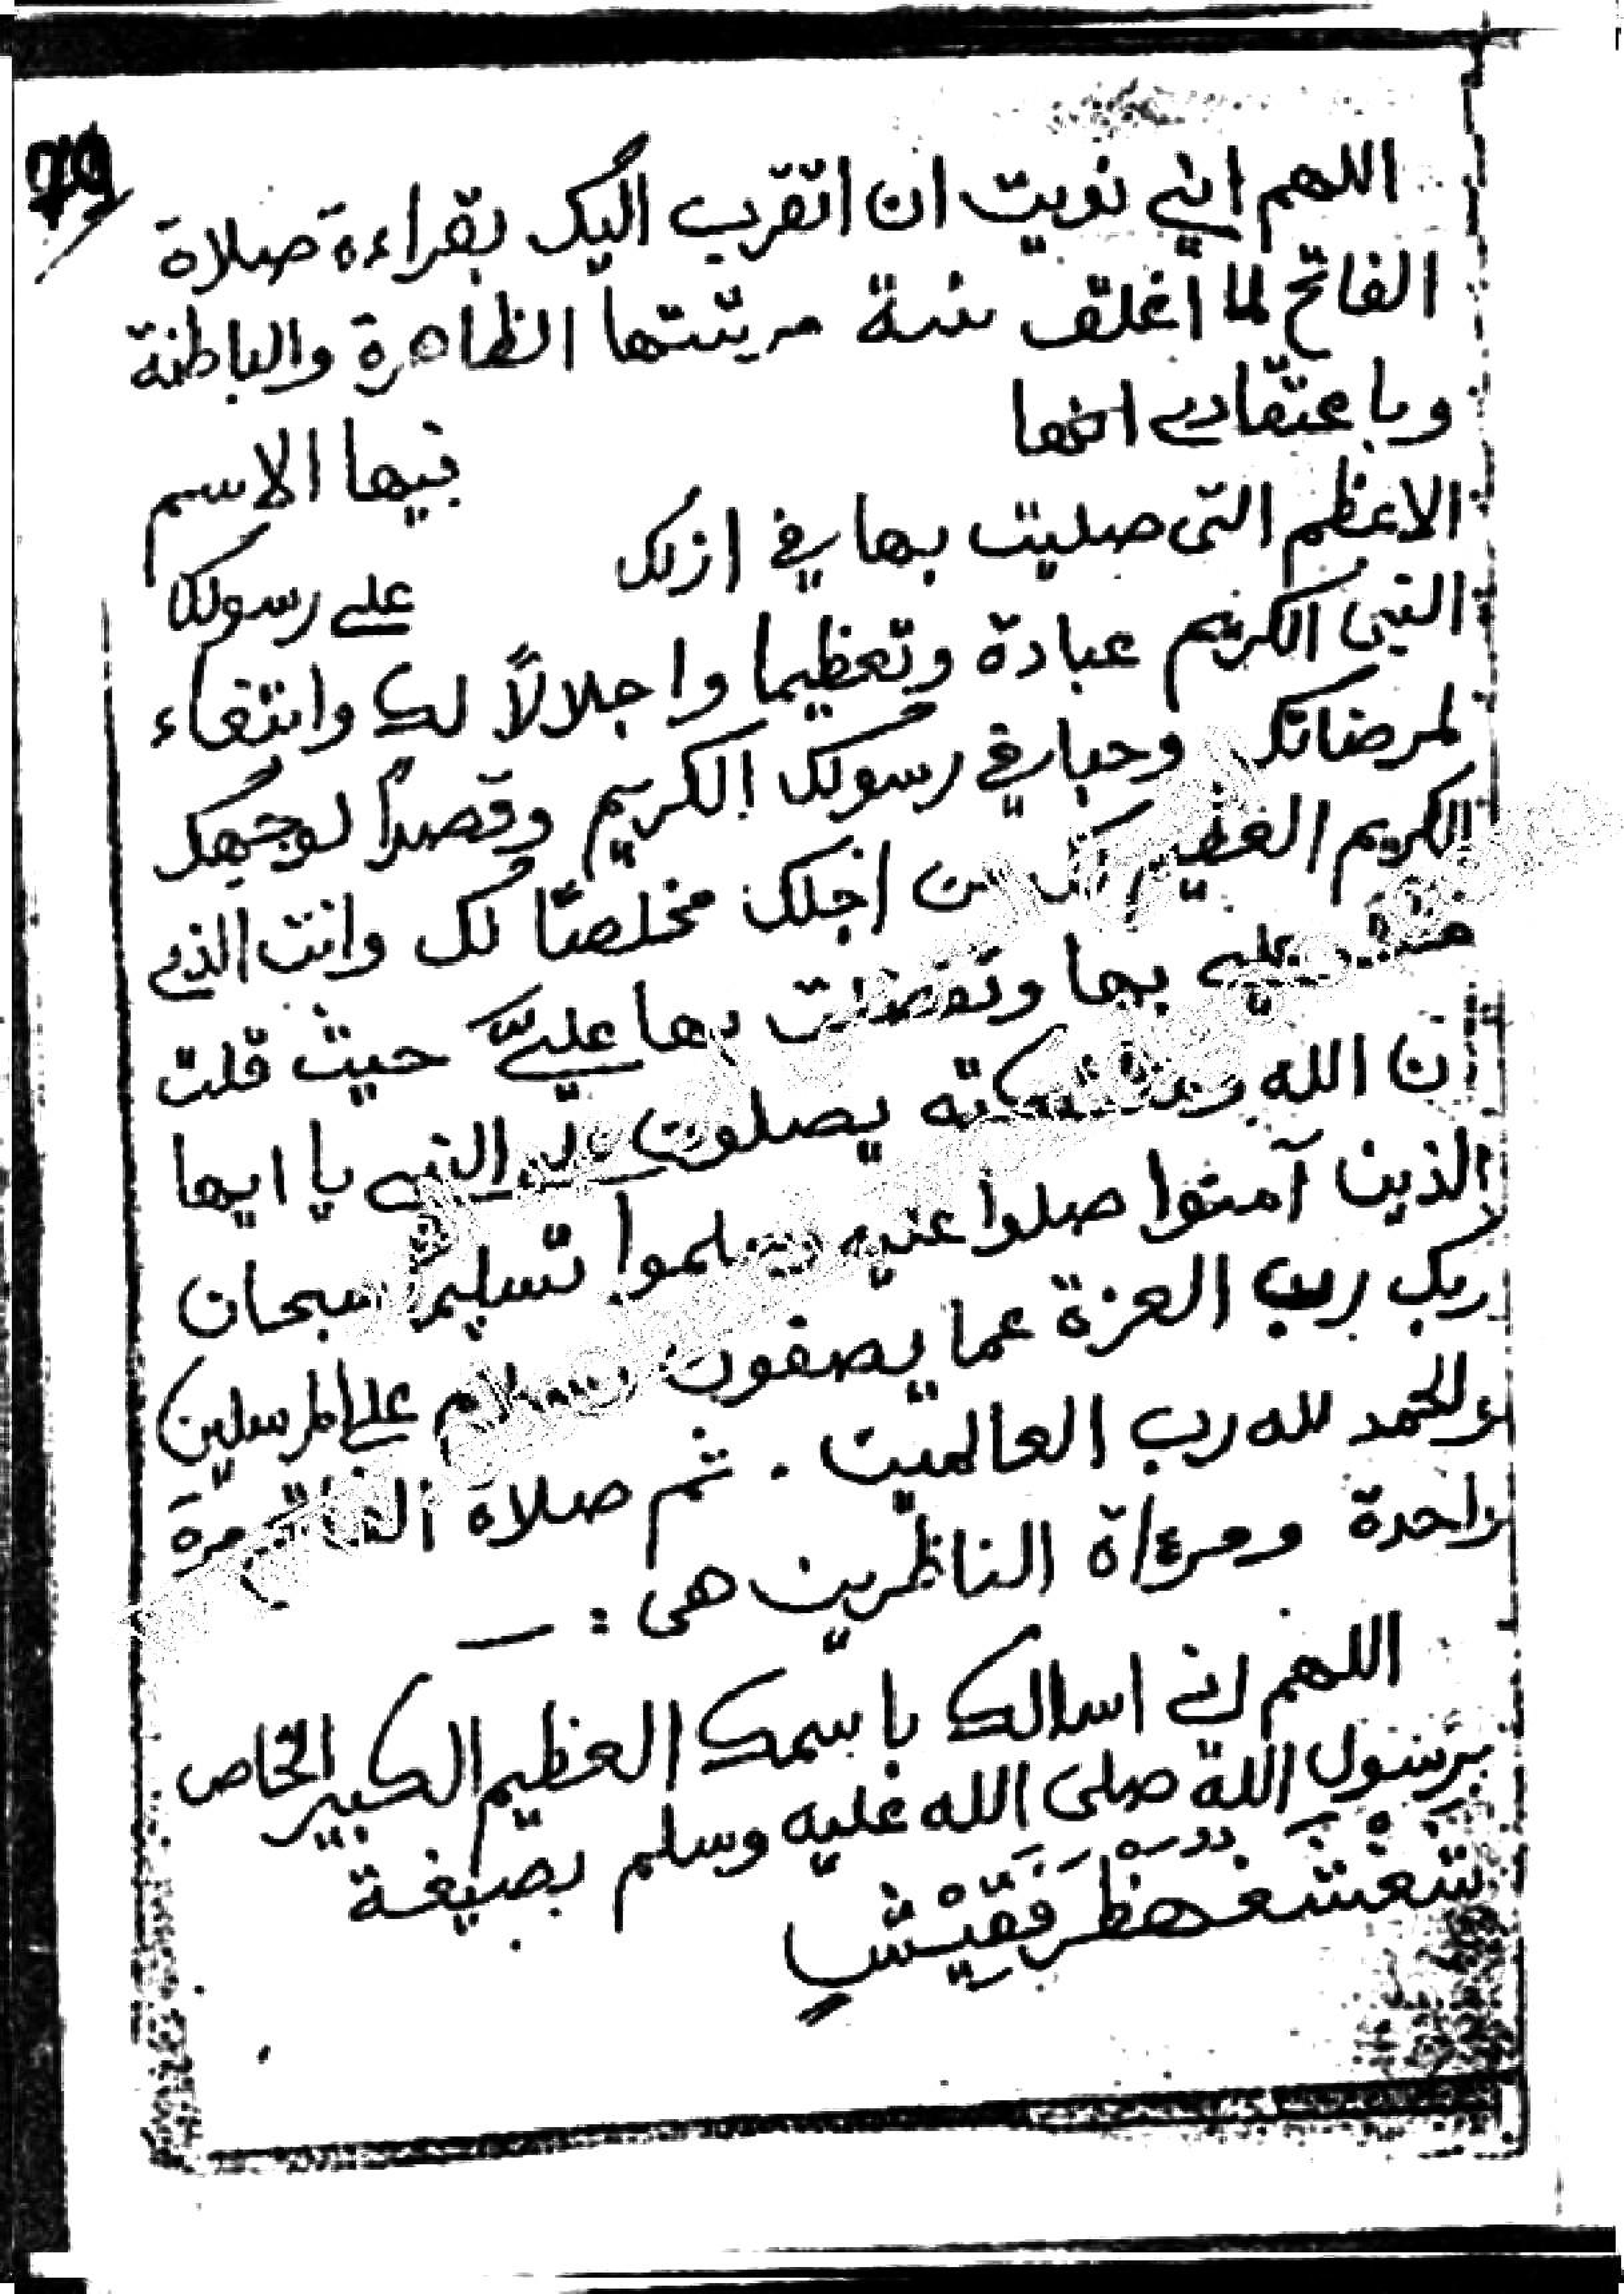 79
اللهم اني نويت ان اتقرب اليك بقراءة صلاة
الفاتح لما أغلق بنية مرتبتها الظاهرة والباطنة
وباعتقادي انها فيها الاسم
الاعظم التى صليت بها في ازلك على رسولك
النبى الكريم عبادة وتعظيما واجلالاً لك وابتغاء
لمرضاتك وحبا في رسولك الكريم وقصداً لوجهك
الكريم العظيم من اجلك مخلصا لك وانت الذي
علي بها وتفضلت بها عليَّ حيث قلت
ان الله وملائكته يصلون على النبي يا ايها
الذين آمنوا صلوا عليه وسلموا تسليما سبحان
ربك رب العزة عما يصفون وسلام على المرسلين
والحمد لله رب العالمين . ثم صلاة الفاتح مرة
واحدة ومرءاة الناظرين هى : ــ
اللهم اني اسالك باسمك العظيم الكبير الخاص
برسول الله صلى الله عليه وسلم بصيغة